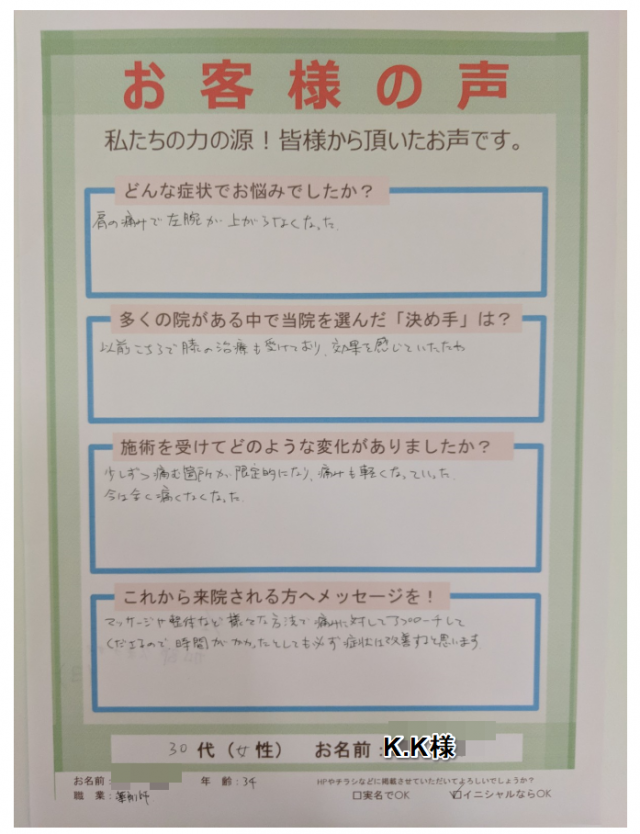 お客様の声
私たちの力の源！皆様から頂いたお声です。
どんな症状でお悩みでしたか？
肩の痛みで左腕が上がらなくなった.
多くの院がある中で当院を選んだ「決め手」は？
以前こちらで膝の治療も受けており、効果を感じていたため
施術を受けてどのような変化がありましたか？
少しずつ痛む箇所が限定的になり、痛みも軽くなっていった.
今は全く痛くなくなった.
これから来院される方へメッセージを！
マッサージや整体など様々な方法で痛みに対してアプローチして
くださるので、時間がかかったとしても必ず症状は改善すると思います
30代（女性） お名前：K.K様
お名前： 年 齢：34 HPやチラシなどに掲載させていただいてよろしいでしょうか？
職 業：薬剤師 □実名でOK ☑イニシャルならOK